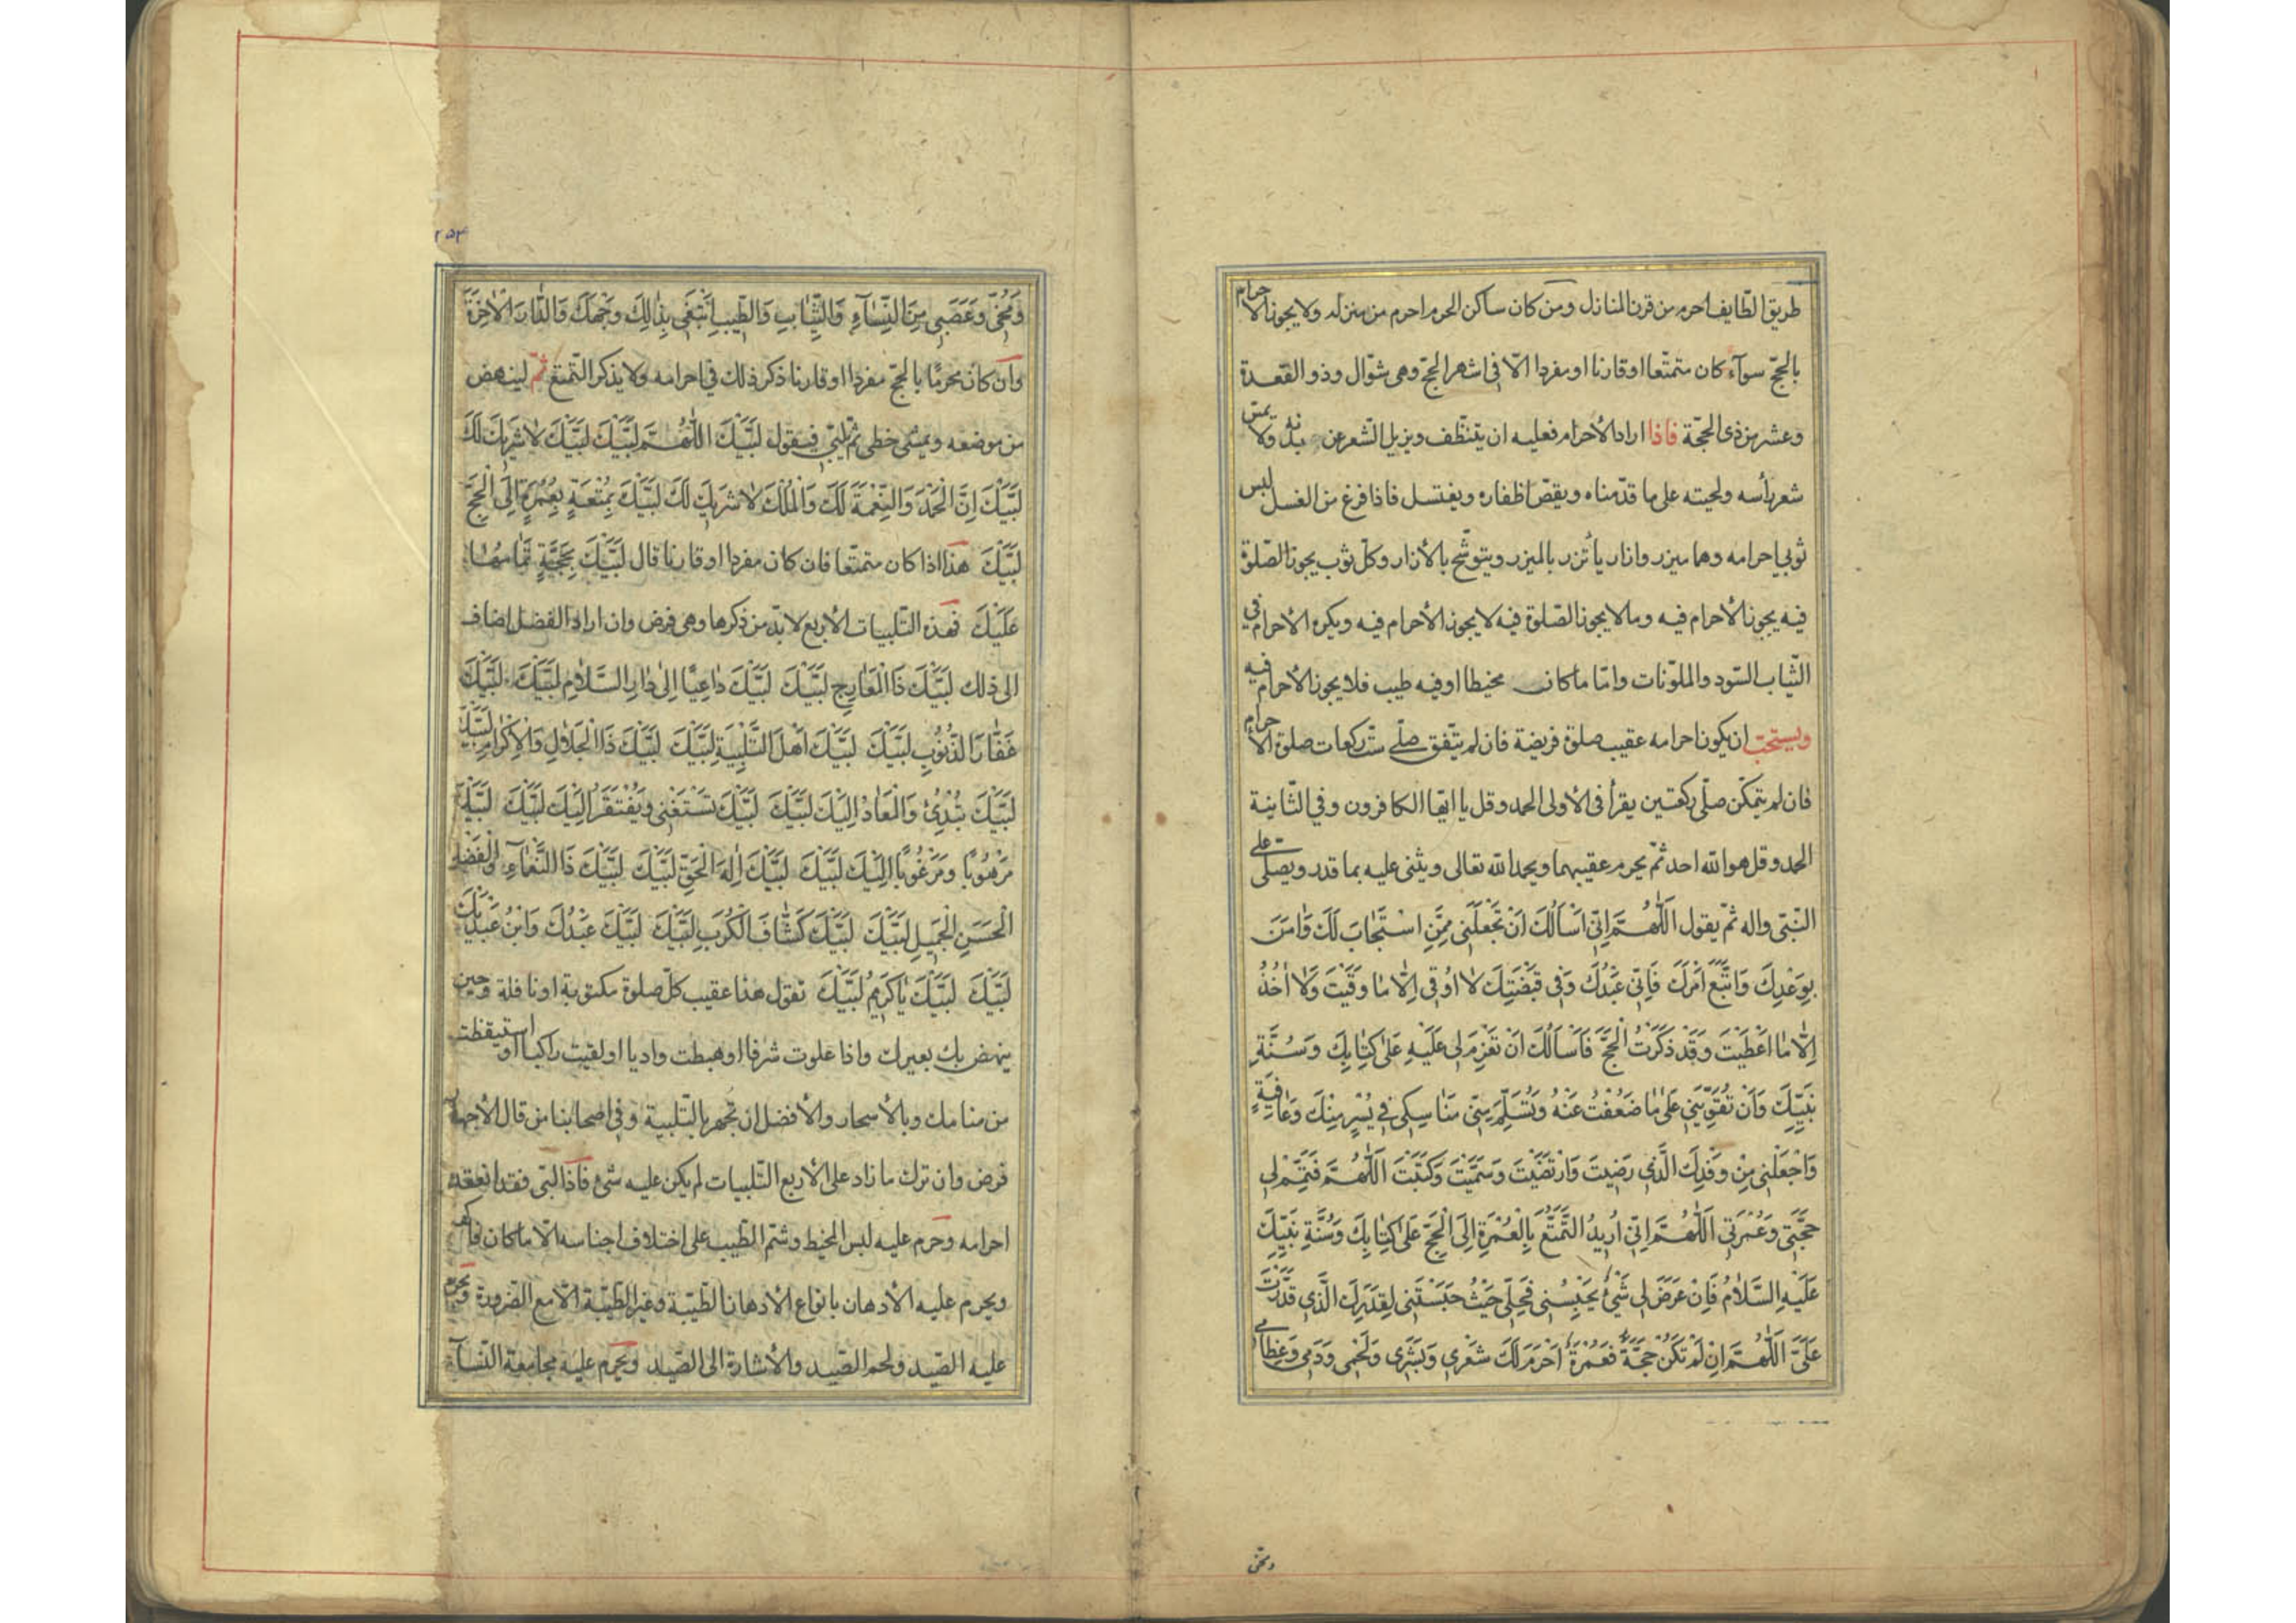 طريق الطّايف احرم من قرن المنازل ومن كان ساكن الحرم احرم من منزله ولا يجوز الاحرام
بالحجّ سوآء كان متمتّعا او قارنا او مفردا الّا فى اشهر الحجّ وهى شوّال وذو القعدة
وعشر من ذى الحجّة فاذا اراد الأحرام فعليه ان يتنظّف ويزيل الشعر عن بدنه ولا يمسّ
شعر رأسه ولحيته على ما قدّمناه ويقصّ اظفاره ويغتسل فاذا فرغ من الغسل لبس
ثوبي احرامه وهما ميزر وازار يأتزر بالميزر ويتوشّح بالأزار وكلّ ثوب يجوز الصّلوة
فيه يجوز الأحرام فيه وما لا يجوز الصّلوة فيه لا يجوز الأحرام فيه ويكره الأحرام في
الثّياب السّود والملوّنات وامّا ما كان مخيطا او فيه طيب فلا يجوز الأحرام فيه
ويستحبّ ان يكون احرامه عقيب صلوة فريضة فان لم يتّفق صلّى ستّ ركعات صلوة الاحرام
فان لم يتمكّن صلّى ركعتين يقرأ فى الأولى الحمد وقل يا ايّها الكافرون وفي الثّانية
الحمد وقل هو الله احد ثمّ يحرم عقيبهما ويحمد الله تعالى ويثنى عليه بما قدر ويصلّى على
النّبّى واله ثمّ يقول اَللّٰهُمَّ اِنّى اَسْاَلُكَ اَنْ تَجْعَلَنى مِمَّنِ اسْتَجٰابَ لَكَ وَاٰمَنَ
بِوَعْدِكَ وَاتَّبَعَ اَمْرَكَ فَاِنّى عَبْدُكَ وَفى قَبْضَتِكَ لٰا اُوقٰى اِلّٰا مٰا وَقَيْتَ وَلٰا اٰخُذُ
اِلّٰا مٰا اَعْطَيْتَ وَقَدْ ذَكَرْتُ الْحَجَّ فَاَسْاَلُكَ اَنْ تَعْزِمَ لى عَلَيْهِ عَلٰى كِتٰابِكَ وَسُنَّةِ
نَبِيِّكَ وَاَنْ تُقَوِّيَنى عَلٰى مٰا ضَعُفْتُ عَنْهُ وَتُسَلِّمَ مِنّى مَنٰاسِكى فى يُسْرٍ مِنْكَ وَعٰافِيَةٍ
وَاجْعَلْنى مِنْ وَفْدِكَ الَّذى رَضيتَ وَارْتَضَيْتَ وَسَمَّيْتَ وَكَتَبْتَ اَللّٰهُمَّ فَتَمِّمْ لى
حَجَّتى وَعُمْرَتى اَللّٰهُمَّ اِنّى اُريدُ التَّمَتُّعَ بِالْعُمْرَةِ اِلَى الْحَجِّ عَلٰى كِتٰابِكَ وَسُنَّةِ نَبِيِّكَ
عَلَيْهِ السَّلٰامُ فَاِنْ عَرَضَ لى شَىْءٌ يَحْبِسُنى فَحَلِّى حَيْثُ حَبَسْتَنى لِقَدَرِكَ الَّذى قَدَّرْتَ
عَلَىَّ اَللّٰهُمَّ اِنْ لَمْ تَكُنْ حَجَّةً فَعُمْرَةً اَحْرَمَ لَكَ شَعْرى وَبَشَرى وَلَحْمى وَدَمى وَعِظٰامى
ومخّى
٢٥٤
وَمُخّى وَعَصَبى مِنَ النِّسٰآءِ وَالثِّيٰابِ وَالطّيبِ اَبْتَغى بِذٰلِكَ وَجْهَكَ وَالدّٰارَ الْاٰخِرَةَ
وان كان محرمًا بالحجّ مفردا او قارنا ذكر ذلك في احرامه ولا يذكر التّمتع ثمّ لينهض
من موضعه ويمشى خطى ثمّ يلبّي فيقول لَبَّيْكَ اَللّٰهُمَّ لَبَّيْكَ لَبَّيْكَ لٰا شَريكَ لَكَ
لَبَّيْكَ اِنَّ الْحَمْدَ وَالنِّعْمَةَ لَكَ وَالْمُلْكَ لٰا شَريكَ لَكَ لَبَّيْكَ بِمُتْعَةٍ بِعُمْرَةٍ اِلَى الْحَجِّ
لَبَّيْكَ هذا اذا كان متمتّعا فان كان مفردا او قارنا قال لَبَّيْكَ بِحَجَّةٍ تَمٰامُهٰا
عَلَيْكَ فهذه التّلبيات الأربع لا بدّ من ذكرها وهى فرض وان اراد الفضل اضاف
الى ذلك لَبَّيْكَ ذَا الْمَعٰارِجِ لَبَّيْكَ لَبَّيْكَ دٰاعِيًا اِلٰى دٰارِ السَّلٰامِ لَبَّيْكَ لَبَّيْكَ
غَفّٰارَ الذُّنُوبِ لَبَّيْكَ لَبَّيْكَ اَهْلَ التَّلْبِيَةِ لَبَّيْكَ لَبَّيْكَ ذَا الْجَلٰالِ وَالْاِكْرٰامِ لَبَّيْكَ
لَبَّيْكَ تُبْدِئُ وَالْمَعٰادُ اِلَيْكَ لَبَّيْكَ لَبَّيْكَ تَسْتَغْنى وَيُفْتَقَرُ اِلَيْكَ لَبَّيْكَ لَبَّيْكَ
مَرْهُوبًا وَمَرْغُوبًا اِلَيْكَ لَبَّيْكَ لَبَّيْكَ اِلٰهَ الْحَقِّ لَبَّيْكَ لَبَّيْكَ ذَا النَّعْمٰآءِ وَالْفَضْلِ
الْحَسَنِ الْجَميلِ لَبَّيْكَ لَبَّيْكَ كَشّٰافَ الْكُرَبِ لَبَّيْكَ لَبَّيْكَ عَبْدُكَ وَابْنُ عَبْدَيْكَ
لَبَّيْكَ لَبَّيْكَ يٰا كَريمُ لَبَّيْكَ تقول هذا عقيب كلّ صلوة مكتوبة او نافلة وحين
ينهض بك بعيرك واذا علوت شرفا او هبطت واديا او لقيت راكبا او استيقظت
من منامك وبالأسحار والأفضل ان تجهر بالتّلبية وفى اصحابنا من قال الأجهار
فرض وان ترك ما زاد على الأربع التّلبيات لم يكن عليه شىء فاذا لبّى فقد انعقد
احرامه وحرم عليه لبس المخيط وشمّ الطّيب على اختلاف اجناسه الّا ما كان فاكهة
ويحرم عليه الأدهان بانواع الأدهان الطّيّبة وغير الطّيّبة الّا مع الضّرورة ويحرم
عليه الصّيد ولحم الصّيد والأشارة الى الصّيد ويحرم عليه مجامعة النّسآء